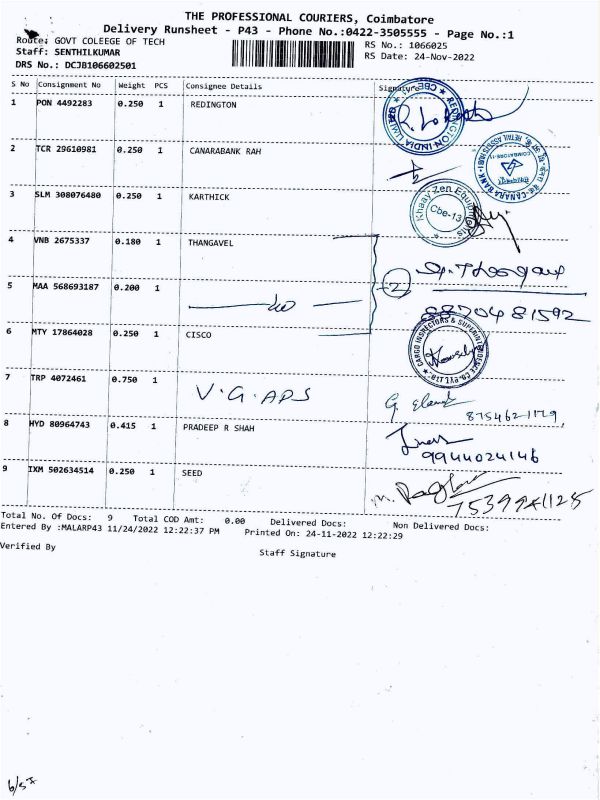 THE PROFESSIONAL COURIERS, Coimbatore
Delivery Runsheet - P43 - Phone No.:0422-3505555 - Page No.:1
Route: GOVT COLEEGE OF TECH
RS No.: 1066025
Staff: SENTHILKUMAR
RS Date: 24-Nov-2022
DRS No.: DCJB106602501
S No Consignment No Weight PCS Consignee Details Signature
1 PON 4492283 0.250 1 REDINGTON
REDINGTON INDIA LIMITED CBE
2 TCR 29610981 0.250 1 CANARABANK RAH
CANARA BANK
3 SLM 308076480 0.250 1 KARTHICK
Khaay Zen Equipments
Cbe-13
4 VNB 2675337 0.180 1 THANGAVEL
5 MAA 568693187 0.200 1
2
8870481592
6 MTY 17864028 0.250 1 CISCO
CARGO INSPECTORS & SUPERINTENDENCE CO. PVT. LTD.
7 TRP 4072461 0.750 1 V.G.APS
8 HYD 80964743 0.415 1 PRADEEP R SHAH
9944024146
9 IXM 502634514 0.250 1 SEED
Total No. Of Docs: 9 Total COD Amt: 0.00 Delivered Docs: Non Delivered Docs:
Entered By :MALARP43 11/24/2022 12:22:37 PM Printed On: 24-11-2022 12:22:29
Verified By Staff Signature